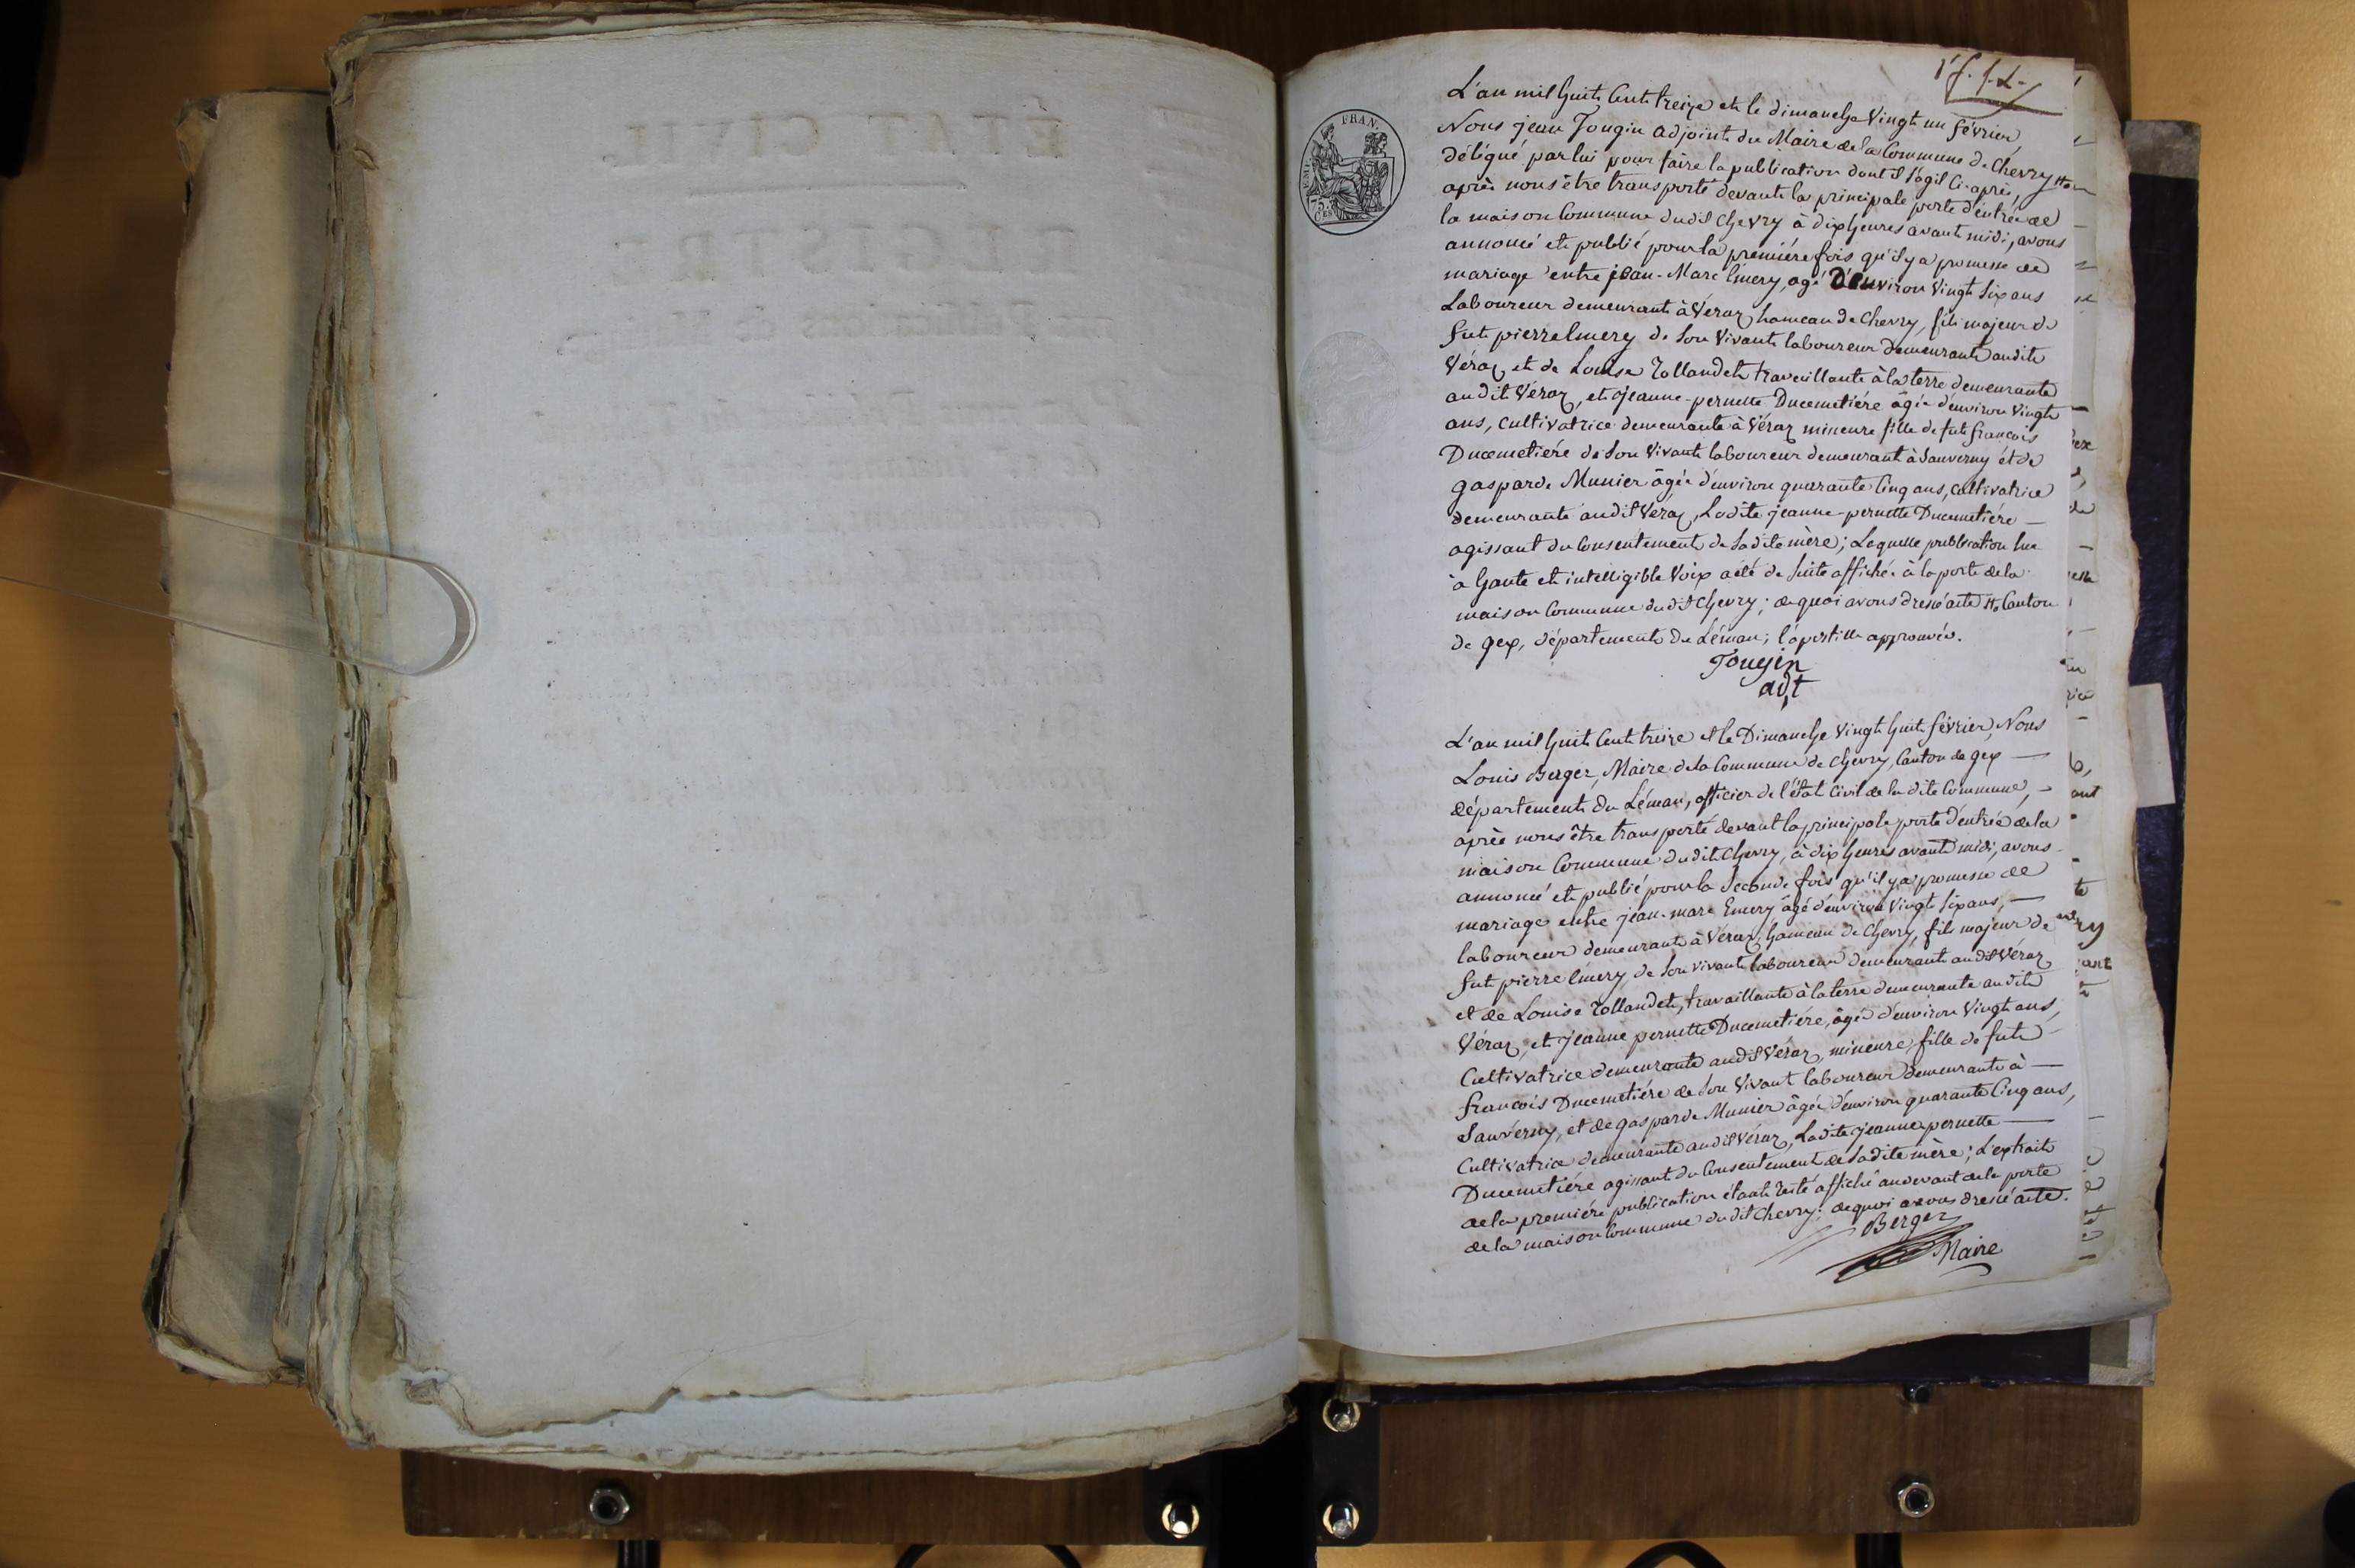 L'an mil huit Cent treize et le dimanche Vingt un février,
Nous jean Tougin adjoint du Maire de la Commune de Chevry #
délégué par lui pour faire la publication dont il s'agit Ci-après,
après nous être transporté devant la principale porte d'entrée de
la maison Commune dudit Chevry à dix heures avant midi, avons
annoncé et publié pour la première fois qu'il y a promesse de
mariage entre jean-Marc Emery, agé d'environ Vingt Six ans
Laboureur demeurant à Véraz hameau de Chevry, fils majeur de
fut pierre Emery de Son Vivant laboureur demeurant audit
Véraz et de Louise Rollandet travaillante à la terre demeurante
audit Véraz, et jeanne-pernette Ducemetiére âgée d'environ Vingt
ans, Cultivatrice demeurante à Véraz mineure fille de fut françois
Ducemetiére de Son Vivant laboureur demeurant à Sauverny et de
gasparde Munier âgée d'environ quarante Cinq ans, Cultivatrice
demeurante audit Véraz, Ladite jeanne-pernette Ducemetiére —
agissant du Consentement de Sadite mère; Laquelle publication lue
à haute et intelligible Voix a été de Suite affichée à la porte de la
maison Commune dudit Chevry; de quoi avons dressé acte # Canton
de gex, département du Léman; l'apostille approuvée.
Tougin
adjt
L'an mil huit Cent treize et le Dimanche Vingt huit février, Nous
Louis Berger, Maire de la Commune de Chevry, Canton de gex —
département du Léman, officier de l'état Civil de la dite Commune, -
après nous être transporté devant la principale porte d'entrée de la
maison Commune dudit Chevry, à dix heures avant midi, avons
annoncé et publié pour la Seconde fois qu'il y a promesse de
mariage entre jean-marc Emery âgé d'environ Vingt Six ans, —
laboureur demeurant à Véraz, hameau de Chevry, fils majeur de
fut pierre Emery, de Son vivant laboureur demeurant audit Véraz
et de Louise Rollandet, travaillante à la terre demeurante audit
Véraz, et jeanne pernette Ducemetiére, âgée d'environ Vingt ans,
Cultivatrice demeurante audit Véraz, mineure, fille de fut
françois Ducemetiére de Son Vivant laboureur demeurant à —
Sauverny, et de gasparde Munier âgée d'environ quarante Cinq ans,
Cultivatrice demeurante audit Véraz, Ladite jeanne pernette —
Ducemetiére agissant du Consentement de Sadite mère; L'extrait
de la première publication étant resté affiché au devant de la porte
de la maison Commune dudit Chevry; de quoi avons dressé acte.
Berger
Maire
EMP. FRAN.
75.